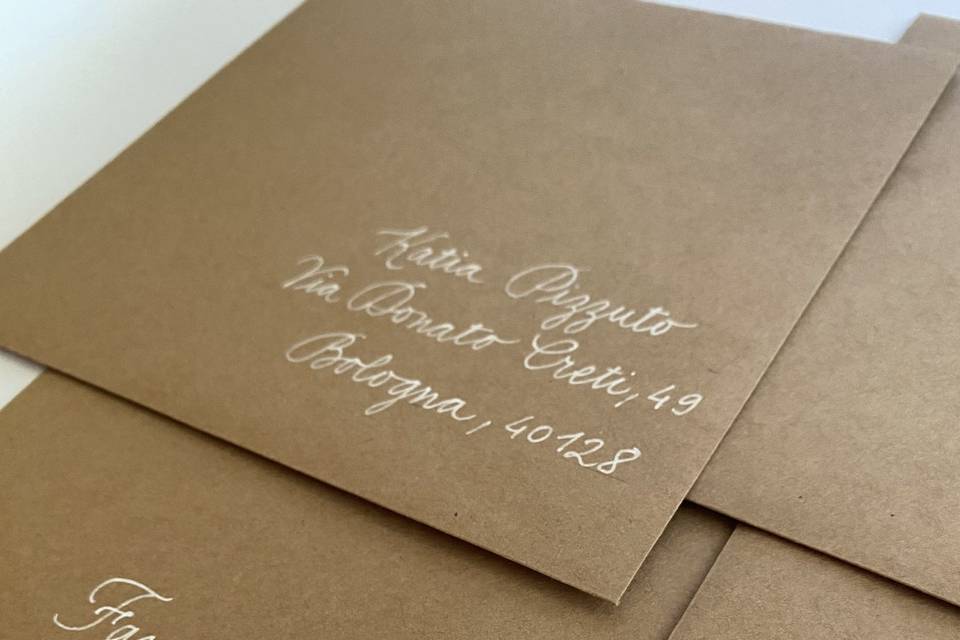 Katia Pizzuto
Via Donato Creti, 49
Bologna, 40128